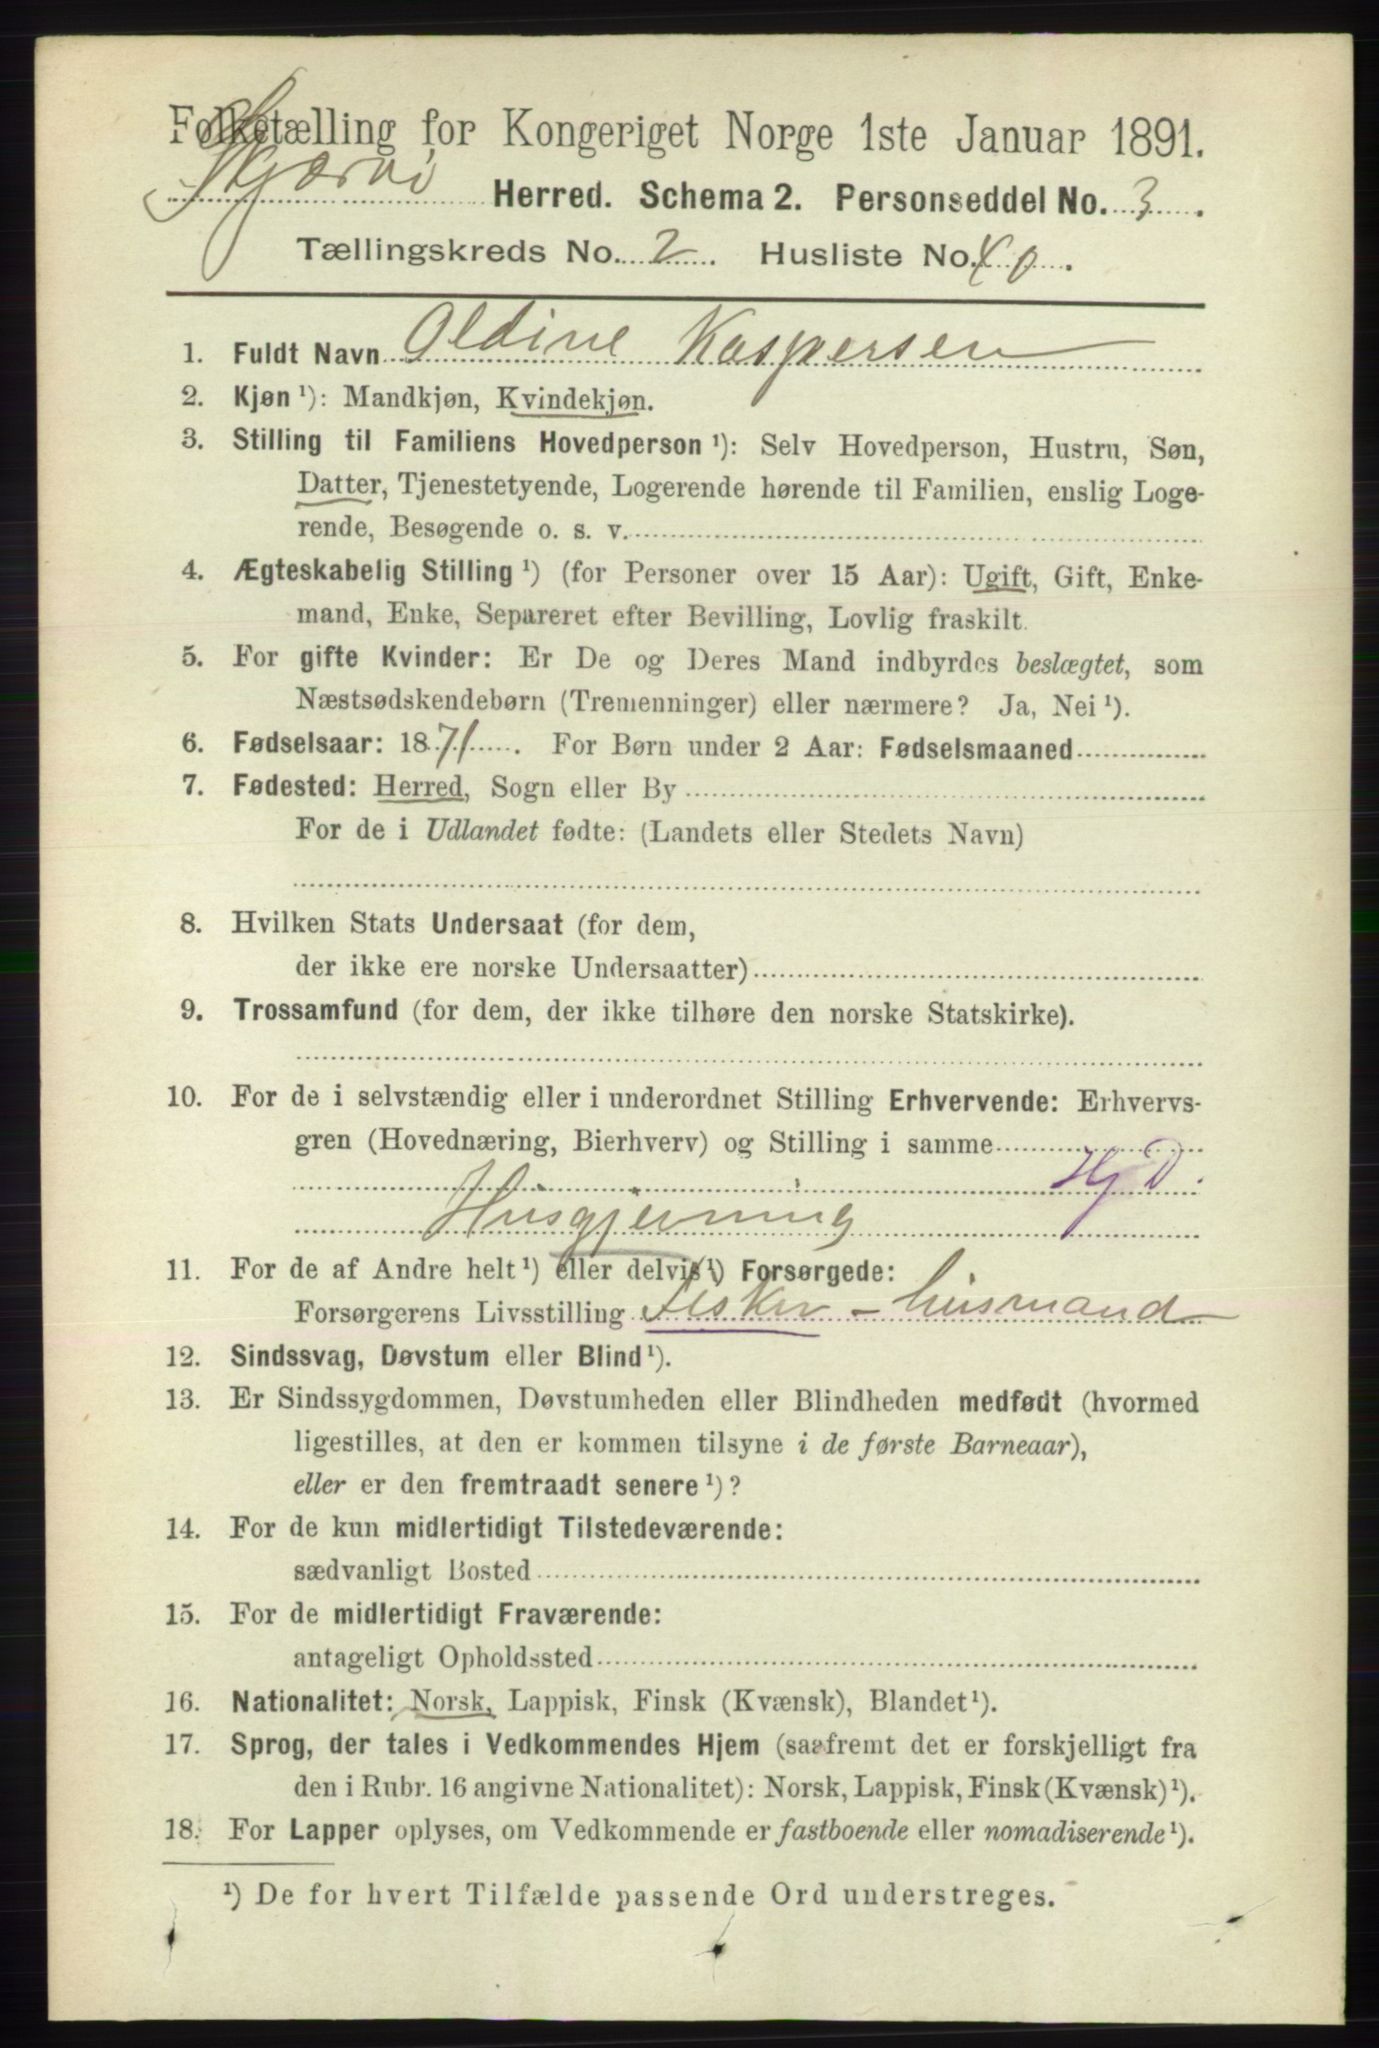 Folketælling for Kongeriget Norge 1ste Januar 1891.
Skjærvø Herred. Schema 2. Personseddel No. 3.
Tællingskreds No. 2. Husliste No. 40.
1. Fuldt Navn Oldine Kaspersen
2. Kjøn ¹): Mandkjøn, Kvindekjøn.
3. Stilling til Familiens Hovedperson ¹): Selv Hovedperson, Hustru, Søn,
Datter, Tjenestetyende, Logerende hørende til Familien, enslig Loge-
rende, Besøgende o. s. v.
4. Ægteskabelig Stilling ¹) (for Personer over 15 Aar): Ugift, Gift, Enke-
mand, Enke, Separeret efter Bevilling, Lovlig fraskilt.
5. For gifte Kvinder: Er De og Deres Mand indbyrdes beslægtet, som
Næstsødskendebørn (Tremenninger) eller nærmere? Ja, Nei ¹).
6. Fødselsaar: 1871. For Børn under 2 Aar: Fødselsmaaned
7. Fødested: Herred, Sogn eller By
For de i Udlandet fødte: (Landets eller Stedets Navn)
8. Hvilken Stats Undersaat (for dem,
der ikke ere norske Undersaatter)
9. Trossamfund (for dem, der ikke tilhøre den norske Statskirke).
10. For de i selvstændig eller i underordnet Stilling Erhvervende: Erhvervs-
gren (Hovednæring, Bierhverv) og Stilling i samme
Hj D.
Husgjerning
11. For de af Andre helt ¹) eller delvis ¹) Forsørgede:
Forsørgerens Livsstilling Fisker - husmand
12. Sindssvag, Døvstum eller Blind ¹).
13. Er Sindssygdommen, Døvstumheden eller Blindheden medfødt (hvormed
ligestilles, at den er kommen tilsyne i de første Barneaar),
eller er den fremtraadt senere ¹)?
14. For de kun midlertidigt Tilstedeværende:
sædvanligt Bosted
15. For de midlertidigt Fraværende:
antageligt Opholdssted
16. Nationalitet: Norsk, Lappisk, Finsk (Kvænsk), Blandet ¹).
17. Sprog, der tales i Vedkommendes Hjem (saafremt det er forskjelligt fra
den i Rubr. 16 angivne Nationalitet): Norsk, Lappisk, Finsk (Kvænsk) ¹).
18. For Lapper oplyses, om Vedkommende er fastboende eller nomadiserende ¹).
¹) De for hvert Tilfælde passende Ord understreges.